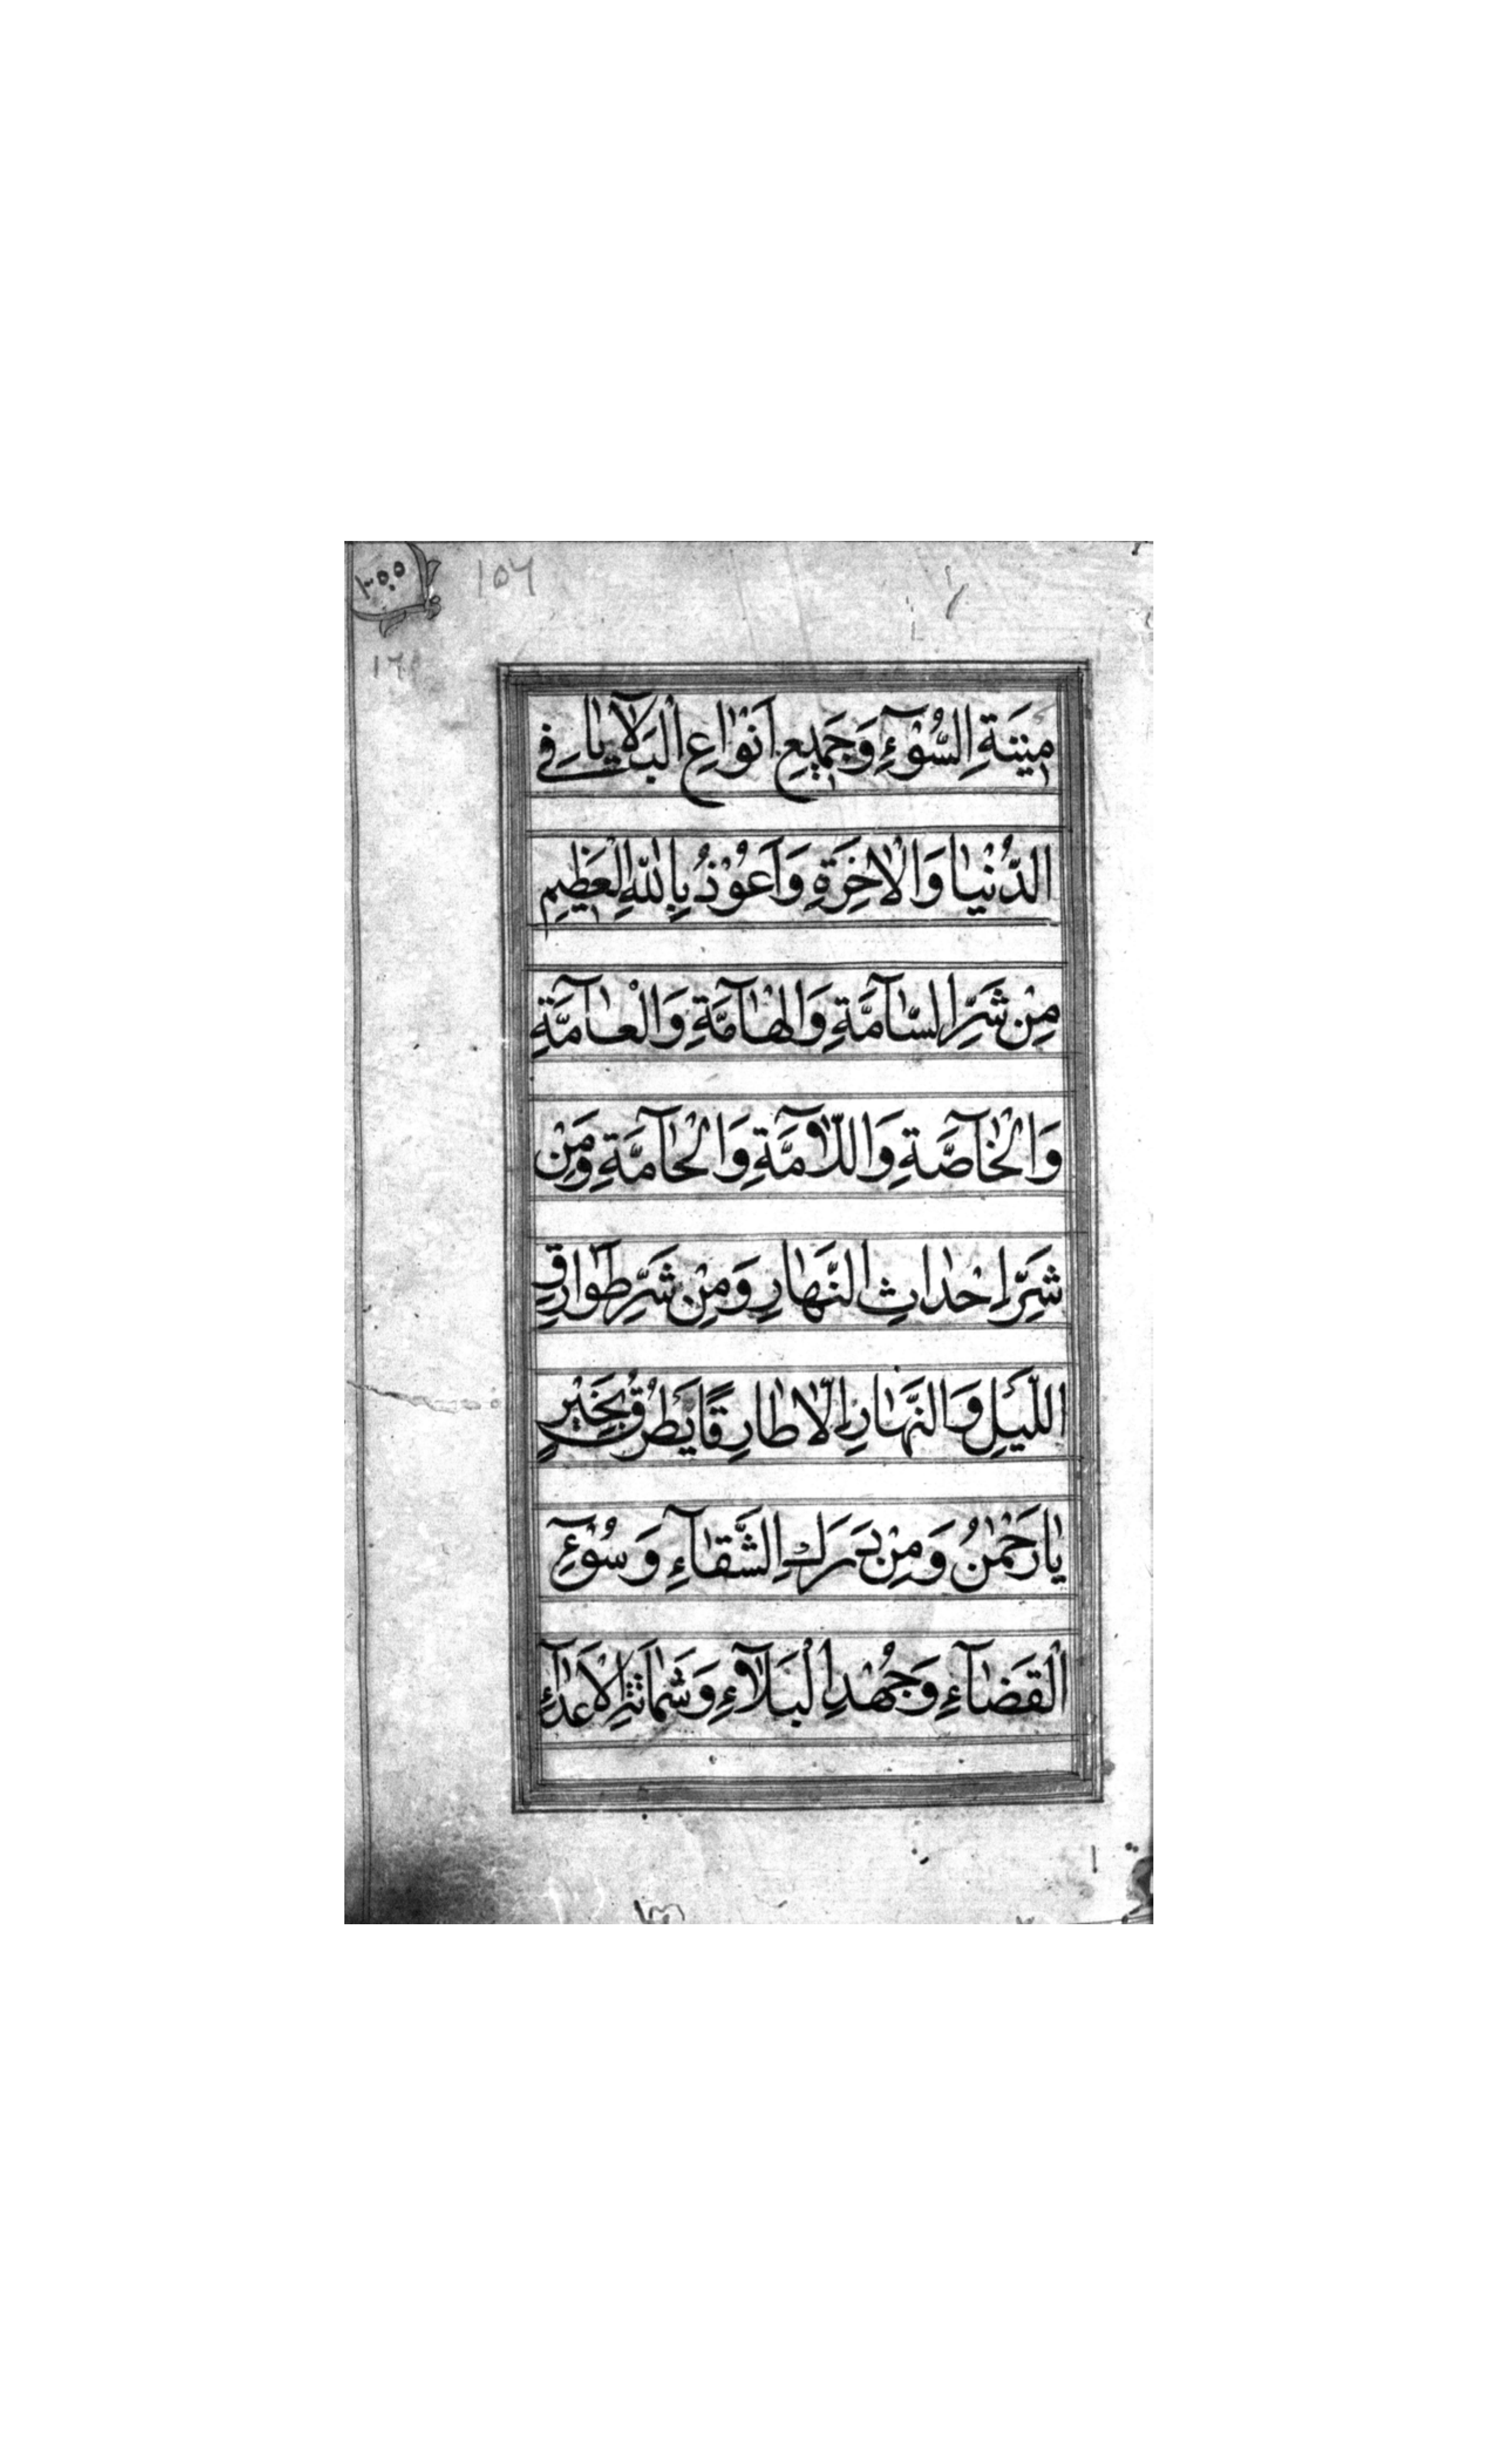 ١٥٦
مِيْتَةِ السُّوْٓءِ وَجَمِيعِ اَنْوٰاعِ الْبَلاٰيٰا فِي
الدُّنْيٰا وَالْاٰخِرَةِ وَاَعُوْذُ بِاللّٰهِ الْعَظِيمِ
مِنْ شَرِّ السّٰآمَّةِ وَالْهٰآمَّةِ وَالْعٰآمَّةِ
وَالْخٰآصَّةِ وَاللّٰآمَّةِ وَالْحٰآمَّةِ وَمِنْ
شَرِّ اِحْدٰاثِ النَّهٰارِ وَمِنْ شَرِّ طَوٰارِقِ
اللَّيْلِ وَالنَّهٰارِ اِلّٰا طٰارِقًا يَطْرُقُ بِخَيْرٍ
يٰا رَحْمٰنُ وَمِنْ دَرَكِ الشَّقٰآءِ وَسُوْٓءِ
الْقَضٰآءِ وَجُهْدِ الْبَلٰآءِ وَشَمٰاتَةِ الْاَعْدٰآءِ